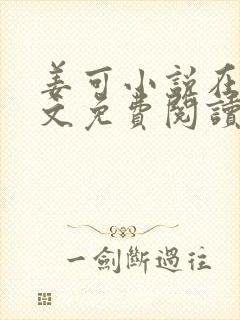 姜可小説在
文免費閱讀
一劍斷過往